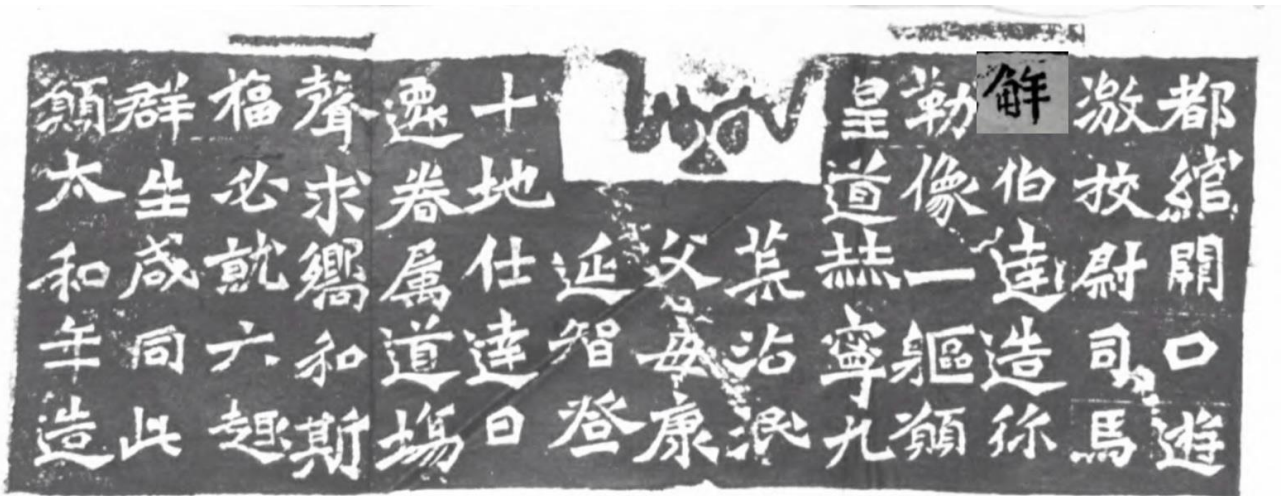 都綰關口遊
激挍尉司馬
解伯達造弥
勒像一軀願
皇道赫寧九
荒沾泯
父母康
延智登
十地仕達日
遷眷属道場
聲求嚮和斯
福必就六趣
群生咸同此
願太和年造